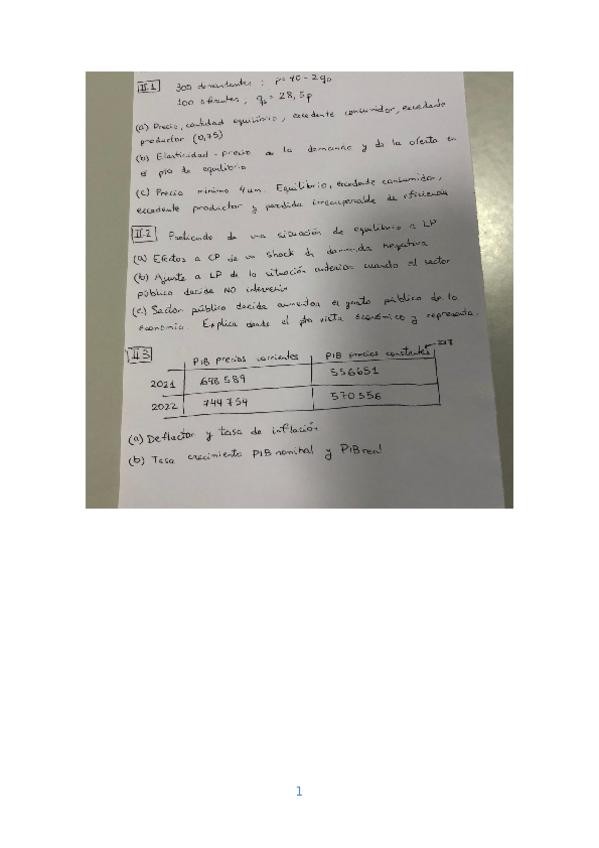 II.1 300 demandantes : p = 40 - 2qD
100 oferentes, qs = 28,5p
(a) Precio, cantidad equilibrio, excedente consumidor, excedente
productor (0,75)
(b) Elasticidad-precio de la demanda y de la oferta en
el pto de equilibrio
(c) Precio mínimo 4um. Equilibrio, excedente consumidor,
excedente productor y pérdida irrecuperable de eficiencia
II.2 Partiendo de una situación de equilibrio a LP
(a) Efectos a CP de un shock de demanda negativa
(b) Ajuste a LP de la situación anterior cuando el sector
público decide NO intervenir
(c) Sector público decide aumentar el gasto público de la
economía. Explica desde el pto vista económico y representa.
II.3 PIB precios corrientes PIB precios constantes
2021 698589 556651
2022 744754 570556
(a) Deflactor y tasa de inflación
(b) Tasa crecimiento PIB nominal y PIB real
1